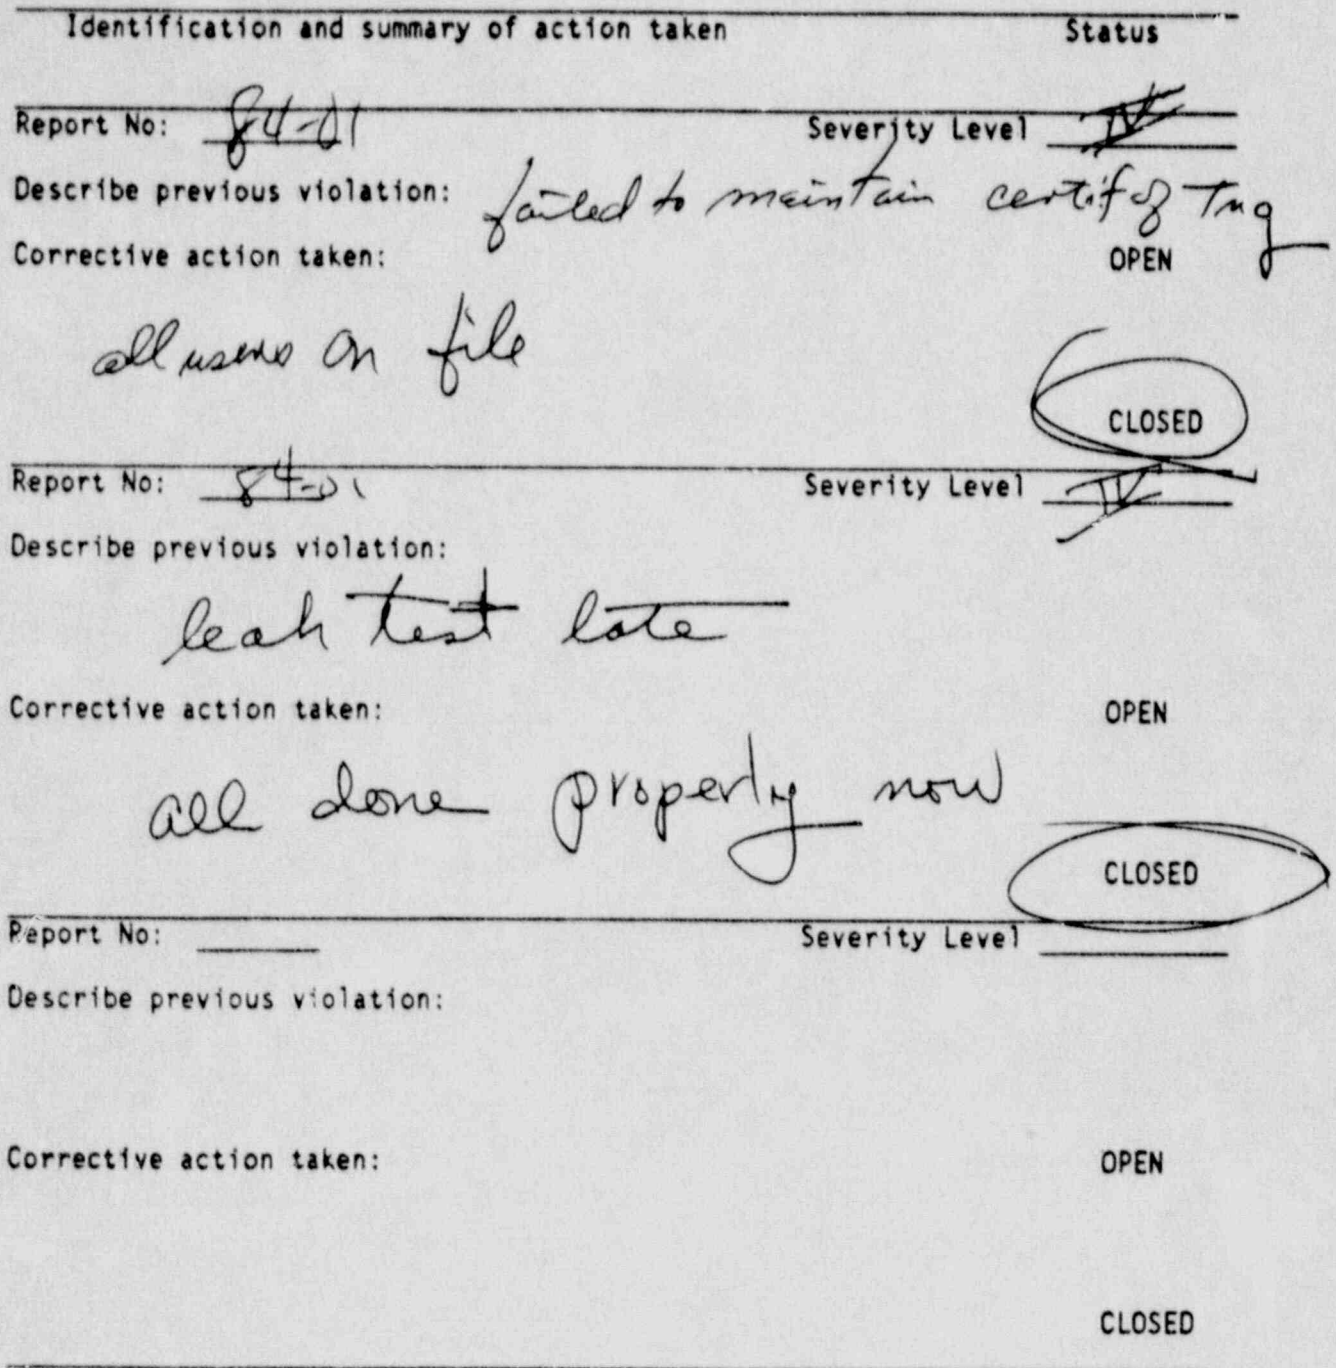 Identification and summary of action taken Status
Report No: 84-01 Severity Level IV
Describe previous violation: failed to maintain certif of Tng
Corrective action taken: OPEN
all users on file
CLOSED
Report No: 84-01 Severity Level IV
Describe previous violation:
leak test late
Corrective action taken: OPEN
all done properly now
CLOSED
Report No: Severity Level
Describe previous violation:
Corrective action taken: OPEN
CLOSED